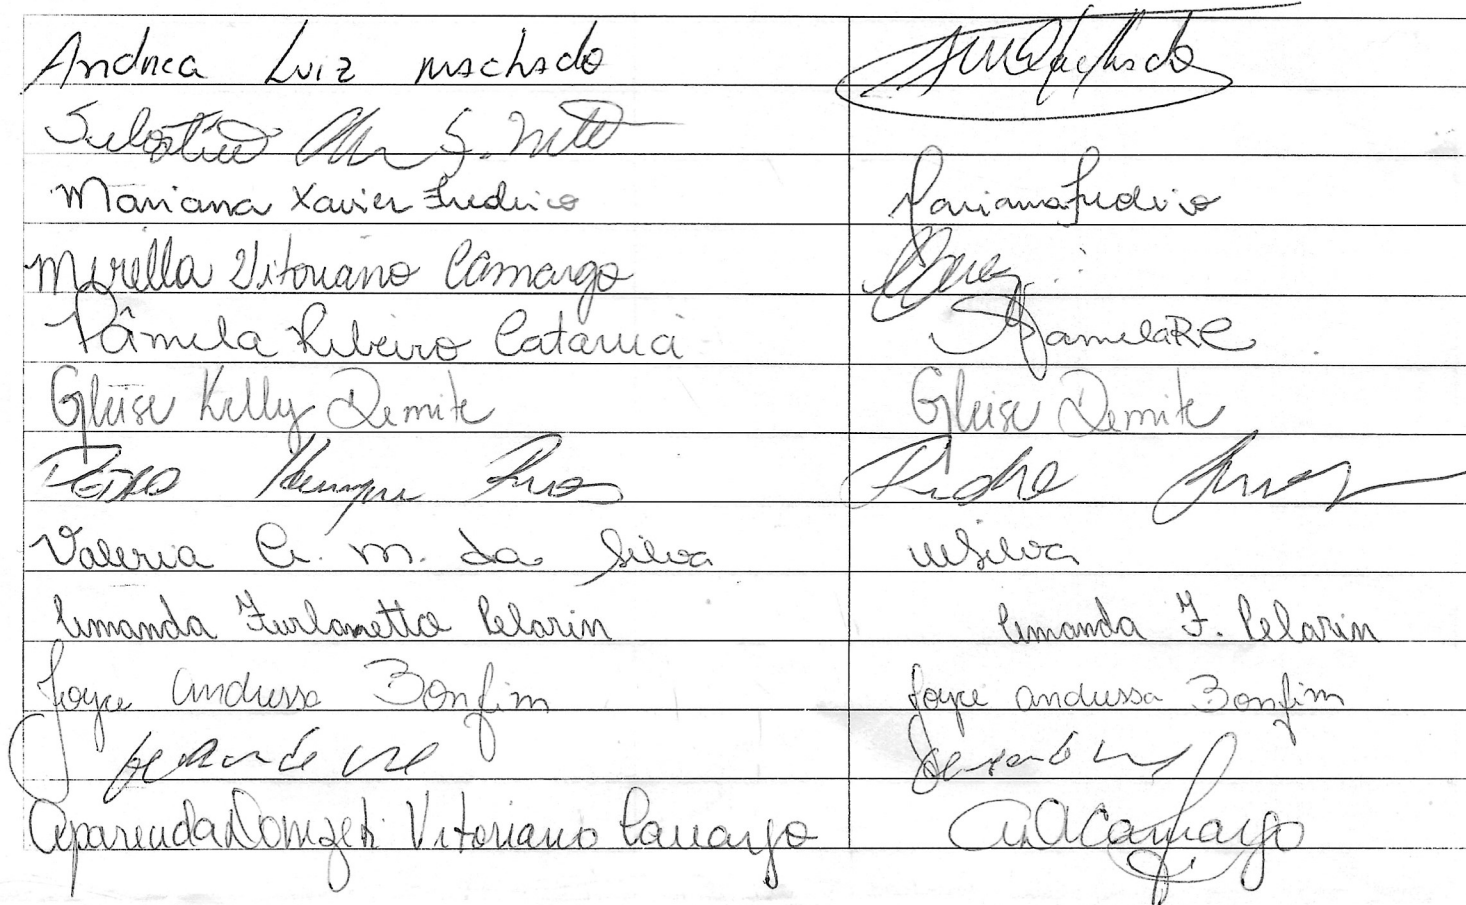 Andrea Luiz machado Machado
Sebastião S. Netto
Mariana Xavier Frederico Mariana Frederico
Mirella Vitoriano Camargo
Pâmela Ribeiro Cataruci PamelaRC
Gleise Kelly Demite Gleise Demite
Pedro Henrique Pedro
Valeria A. M. da Silva Silva
Amanda Furlanetto Pelarin Amanda F. Pelarin
Joyce Andressa Bonfim Joyce Andressa Bonfim
Aparecida Donizeti Vitoriano Camargo Camargo